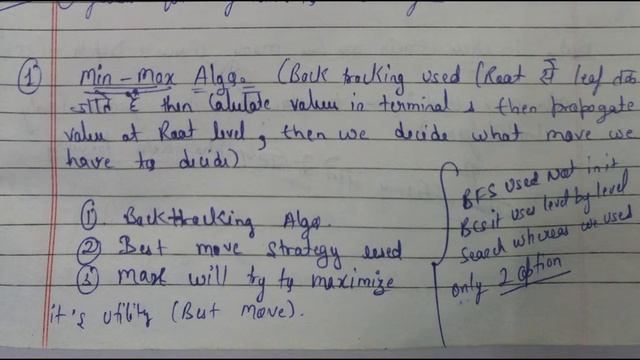 ① Min-Max Algo. (Back tracking used (Root से leaf तक
जाते हैं then Calculate values in terminal & then propagate
values at Root level, then we decide what move we
have to decide)
① Backtracking Algo.
② Best move strategy used
③ Max will try to maximize
it's utility (Best Move).
BFS used not in it
Bcs it uses level by level
Search whereas we used
only 2 option